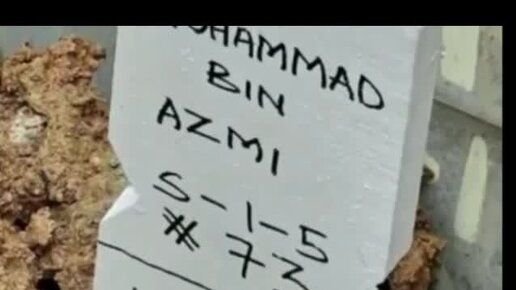 MUHAMMAD
BIN
AZMI
S-1-5
# 73